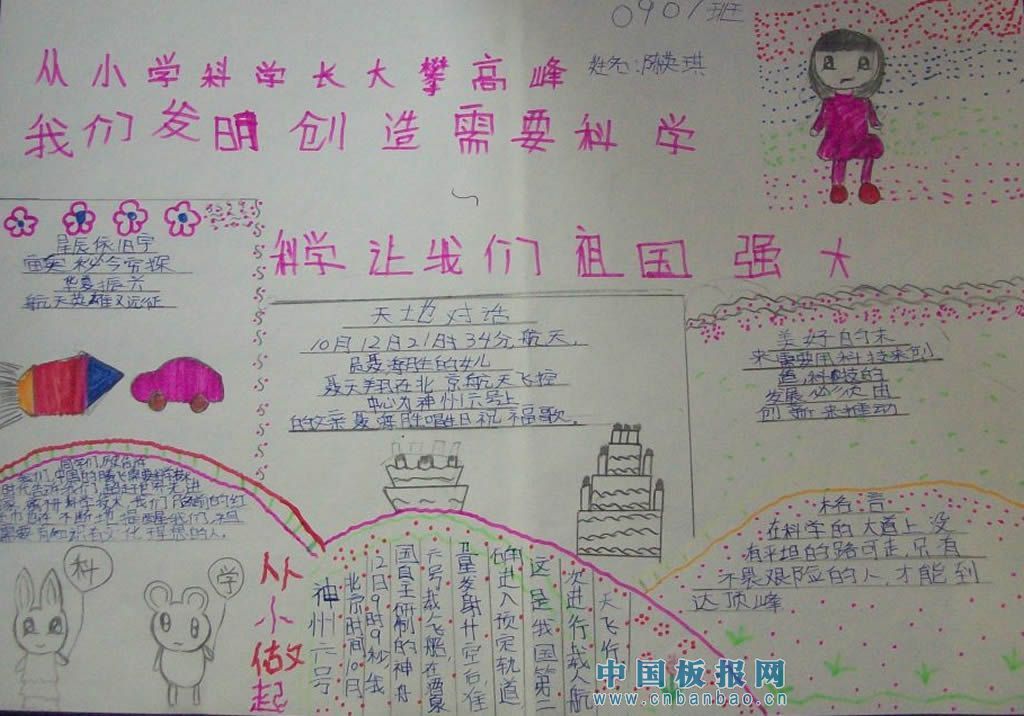 0901班
从小学科学长大攀高峰
姓名:陈英琪
我们发明创造需要科学
科学让我们祖国强大
星辰依旧宇
宙奥秘今穷探
华夏振兴
航天英雄又远征
天地对话
10月12日21时34分,航天
员聂海胜的女儿
聂天翔在北京航天飞控
中心为神州六号上
的父亲聂海胜唱生日祝福歌。
美好的未
来需要用科技来创
造,科技的
发展必须由
创新来推动
格言
在科学的大道上没
有平坦的路可走,只有
不畏艰险的人,才能到
达顶峰
科
学
从小做起
神州六号
北京时间10月
12日9时9秒,我
国自主研制的神舟
六号载人飞船,在酒泉
卫星发射升空后准
确进入预定轨道,
这是我国第二
次进行载人航
天飞行
中国板报网
www.cnbanbao.cn